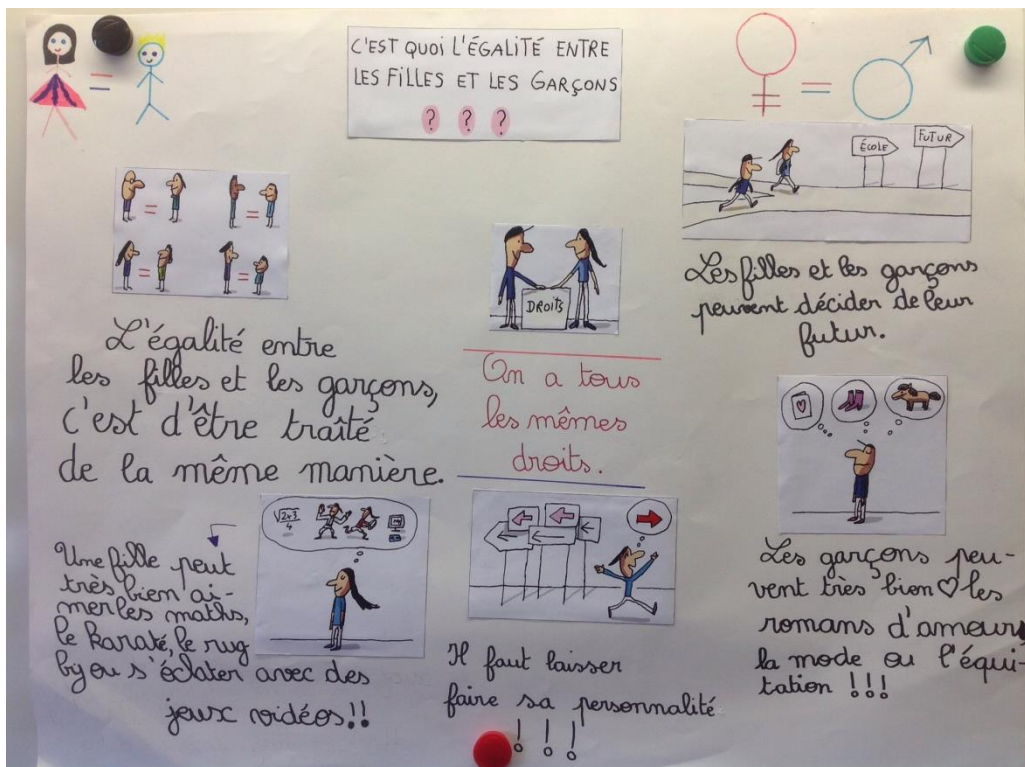 C'EST QUOI L'ÉGALITÉ ENTRE
LES FILLES ET LES GARÇONS
? ? ?
ÉCOLE
FUTUR
DROITS
Les filles et les garçons
peuvent décider de leur
futur.
L'égalité entre
les filles et les garçons,
c'est d'être traîté
de la même manière.
On a tous
les mêmes
droits.
Une fille peut
très bien ai-
mer les maths,
le Karaté, le rug
by ou s'éclater avec des
jeux vidéos!!
Il faut laisser
faire sa personnalité
! ! !
Les garçons peu-
vent très bien ♡ les
romans d'amour,
la mode ou l'équi-
tation !!!